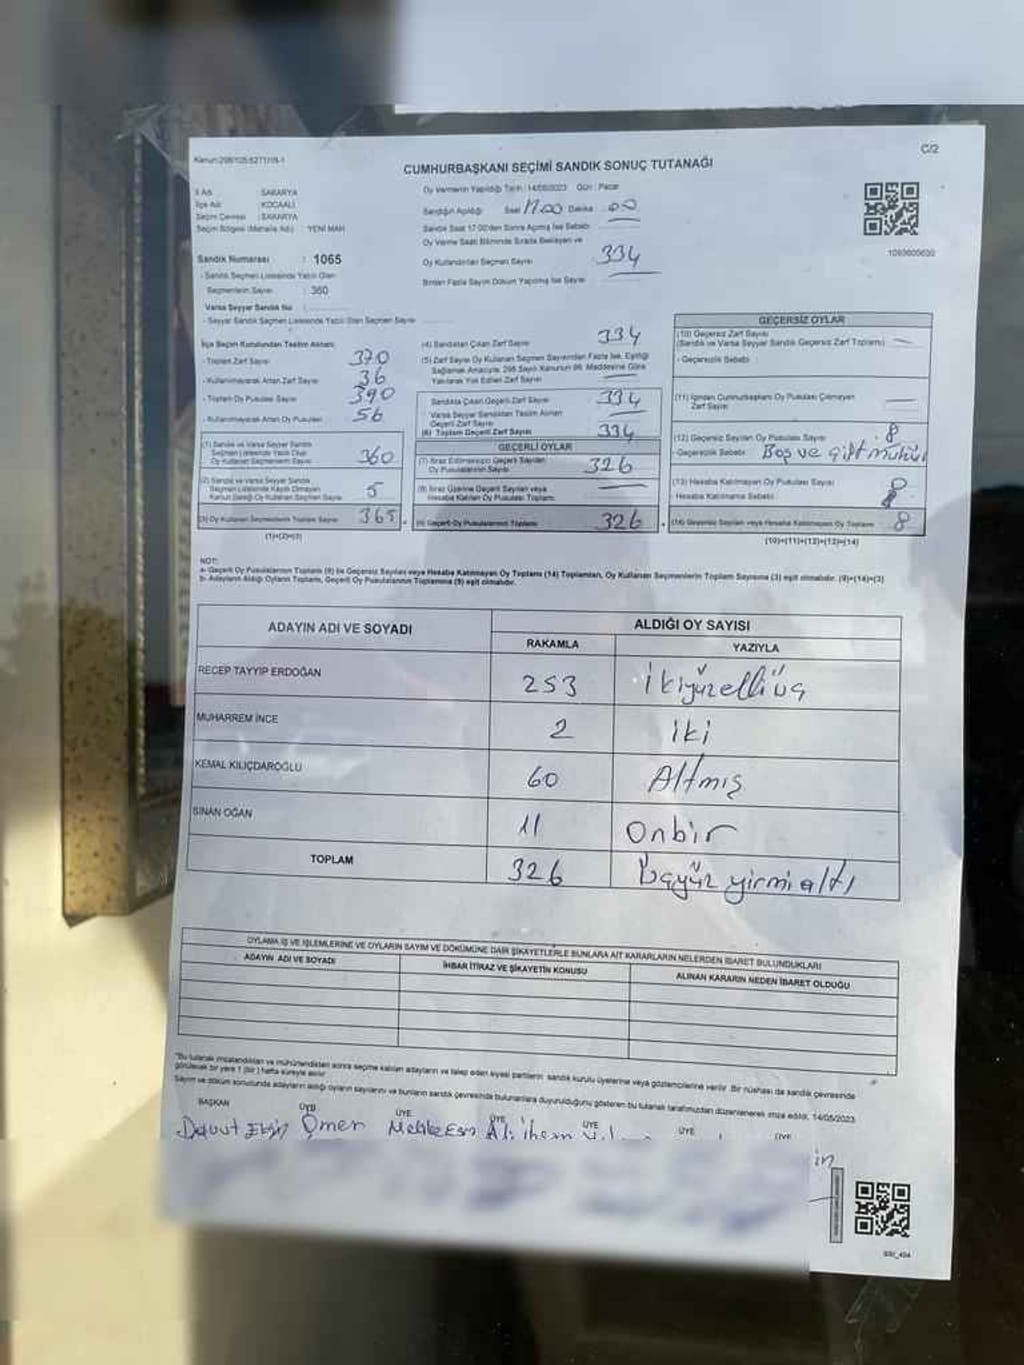 Kanun:298/105;6271/18-1
C/2
CUMHURBAŞKANI SEÇİMİ SANDIK SONUÇ TUTANAĞI
İl Adı : SAKARYA
İlçe Adı : KOCAALİ
Seçim Çevresi : SAKARYA
Seçim Bölgesi (Mahalle Adı) : YENİ MAH
Sandık Numarası : 1065
- Sandık Seçmen Listesinde Yazılı Olan
Seçmenlerin Sayısı : 360
Varsa Seyyar Sandık No :
- Seyyar Sandık Seçmen Listesinde Yazılı Olan Seçmen Sayısı
Oy Vermenin Yapıldığı Tarih : 14/05/2023 Gün : Pazar
Sandığın Açıldığı Saat 17.00 Dakika 00
Sandık Saat 17.00'den Sonra Açılmış İse Sebebi
Oy Verme Saati Bitiminde Sırada Bekleyen ve
Oy Kullandırılan Seçmen Sayısı 334
Birden Fazla Sayım Döküm Yapılmış İse Sayısı
1093605630
İlçe Seçim Kurulundan Teslim Alınan:
- Toplam Zarf Sayısı 370
- Kullanılmayarak Artan Zarf Sayısı 36
- Toplam Oy Pusulası Sayısı 390
- Kullanılmayarak Artan Oy Pusulası 56
(1) Sandık ve Varsa Seyyar Sandık
Seçmen Listesinde Yazılı Olup
Oy Kullanan Seçmenlerin Sayısı 360
(2) Sandık ve Varsa Seyyar Sandık
Seçmen Listesinde Kayıtlı Olmayan
Kanun Gereği Oy Kullanan Seçmen Sayısı 5
(3) Oy Kullanan Seçmenlerin Toplam Sayısı 365
(1)+(2)=(3)
(4) Sandıktan Çıkan Zarf Sayısı 334
(5) Zarf Sayısı Oy Kullanan Seçmen Sayısından Fazla İse, Eşitliği
Sağlamak Amacıyla, 298 Sayılı Kanunun 98. Maddesine Göre
Yakılarak Yok Edilen Zarf Sayısı
Sandıkta Çıkan Geçerli Zarf Sayısı 334
Varsa Seyyar Sandıktan Teslim Alınan
Geçerli Zarf Sayısı
(6) Toplam Geçerli Zarf Sayısı 334
GEÇERLİ OYLAR
(7) İtiraz Edilmeksizin Geçerli Sayılan
Oy Pusulalarının Sayısı 326
(8) İtiraz Üzerine Geçerli Sayılan veya
Hesaba Katılan Oy Pusulası Toplamı
(9) Geçerli Oy Pusulalarının Toplamı 326
GEÇERSİZ OYLAR
(10) Geçersiz Zarf Sayısı
(Sandık ve Varsa Seyyar Sandık Geçersiz Zarf Toplamı)
- Geçersizlik Sebebi
(11) İçinden Cumhurbaşkanı Oy Pusulası Çıkmayan
Zarf Sayısı
(12) Geçersiz Sayılan Oy Pusulası Sayısı 8
- Geçersizlik Sebebi Boş ve çift mühür
(13) Hesaba Katılmayan Oy Pusulası Sayısı
- Hesaba Katılmama Sebebi
(14) Geçersiz Sayılan veya Hesaba Katılmayan Oy Toplamı 8
(10)+(11)+(12)+(13)=(14)
NOT:
a- Geçerli Oy Pusulalarının Toplamı (9) ile Geçersiz Sayılan veya Hesaba Katılmayan Oy Toplamı (14) Toplamları, Oy Kullanan Seçmenlerin Toplam Sayısına (3) eşit olmalıdır. (9)+(14)=(3)
b- Adayların Aldığı Oyların Toplamı, Geçerli Oy Pusulalarının Toplamına (9) eşit olmalıdır.
ADAYIN ADI VE SOYADI ALDIĞI OY SAYISI
RAKAMLA YAZIYLA
RECEP TAYYİP ERDOĞAN 253 ikiyüzelliüç
MUHARREM İNCE 2 iki
KEMAL KILIÇDAROĞLU 60 Altmış
SİNAN OĞAN 11 Onbir
TOPLAM 326 Üçyüz yirmi altı
OYLAMA İŞ VE İŞLEMLERİNE VE OYLARIN SAYIM VE DÖKÜMÜNE DAİR ŞİKAYETLERLE BUNLARA AİT KARARLARIN NELERDEN İBARET BULUNDUKLARI
ADAYIN ADI VE SOYADI İHBAR İTİRAZ VE ŞİKAYETİN KONUSU ALINAN KARARIN NEDEN İBARET OLDUĞU
"Bu tutanak imzalandıktan ve mühürlendikten sonra seçime katılan adayların ve talep eden siyasi partilerin sandık kurulu üyelerine veya gözlemcilerine verilir. Bir nüshası da sandık çevresinde
görülecek bir yere 1 (bir) hafta süreyle asılır.
Sayım ve döküm sonucunda adayların aldığı oyların sayılarını ve bunların sandık çevresinde bulunanlara duyurulduğunu gösteren bu tutanak tarafımızdan düzenlenerek imza edildi. 14/05/2023
BAŞKAN ÜYE ÜYE ÜYE ÜYE ÜYE ÜYE
Davut Ömer Ali ihsan